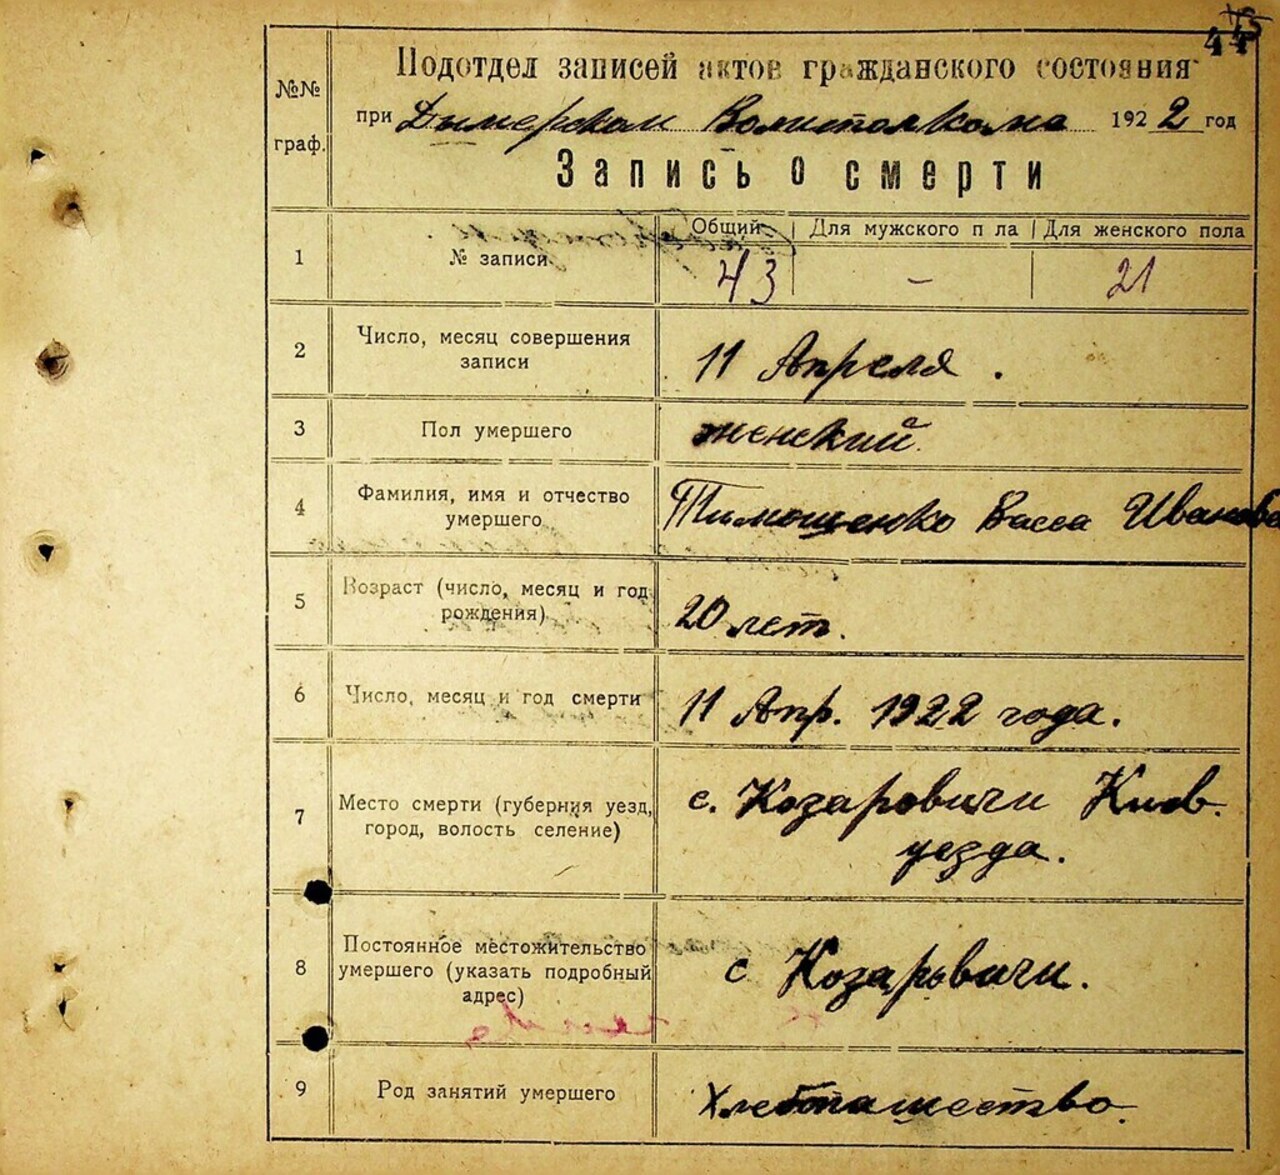 44
№№ граф.
Подотдел записей актов гражданского состояния
при Дымерском Волисполкома 1922 год
Запись о смерти
Общий
Для мужского пола
Для женского пола
1
№ записи
43
-
21
2
Число, месяц совершения
записи
11 Апреля.
3
Пол умершего
женский.
4
Фамилия, имя и отчество
умершего
Тимошенко Васса Иванова
5
Возраст (число, месяц и год
рождения)
20 лет.
6
Число, месяц и год смерти
11 Апр. 1922 года.
7
Место смерти (губерния уезд,
город, волость селение)
с. Козаровичи Киев.
уезда.
8
Постоянное местожительство
умершего (указать подробный
адрес)
с Козаровичи.
9
Род занятий умершего
Хлебопашество.